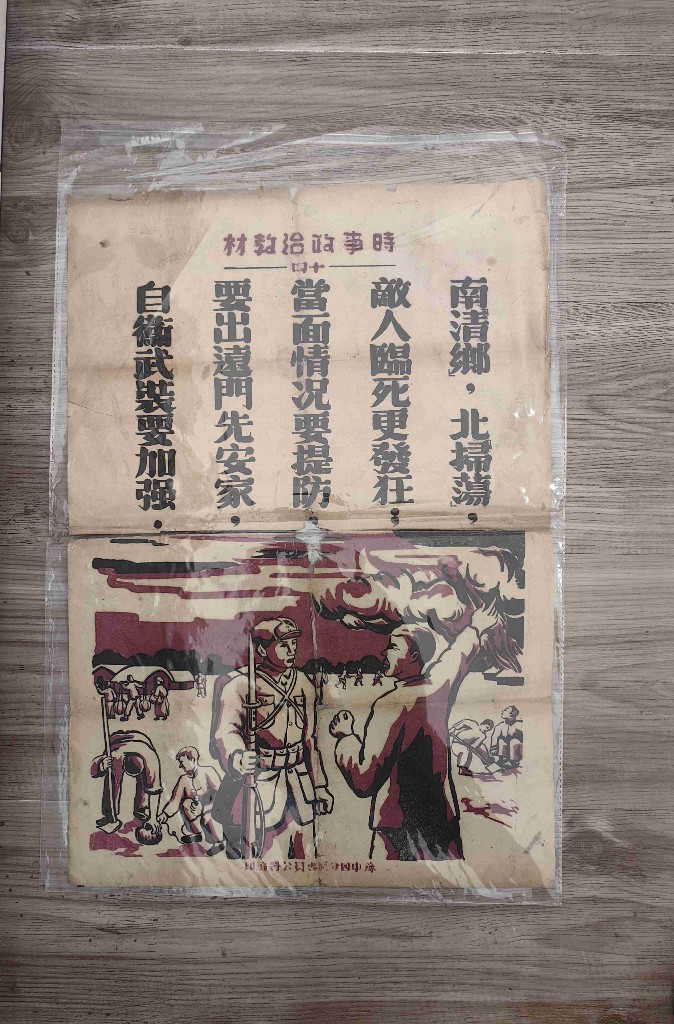 時事政治教材
十四
南「清鄉」，北「掃蕩」，
敵人臨死更發狂；
當面情况要提防，
要出遠門先安家，
自衛武裝要加强．
蘇中四分區